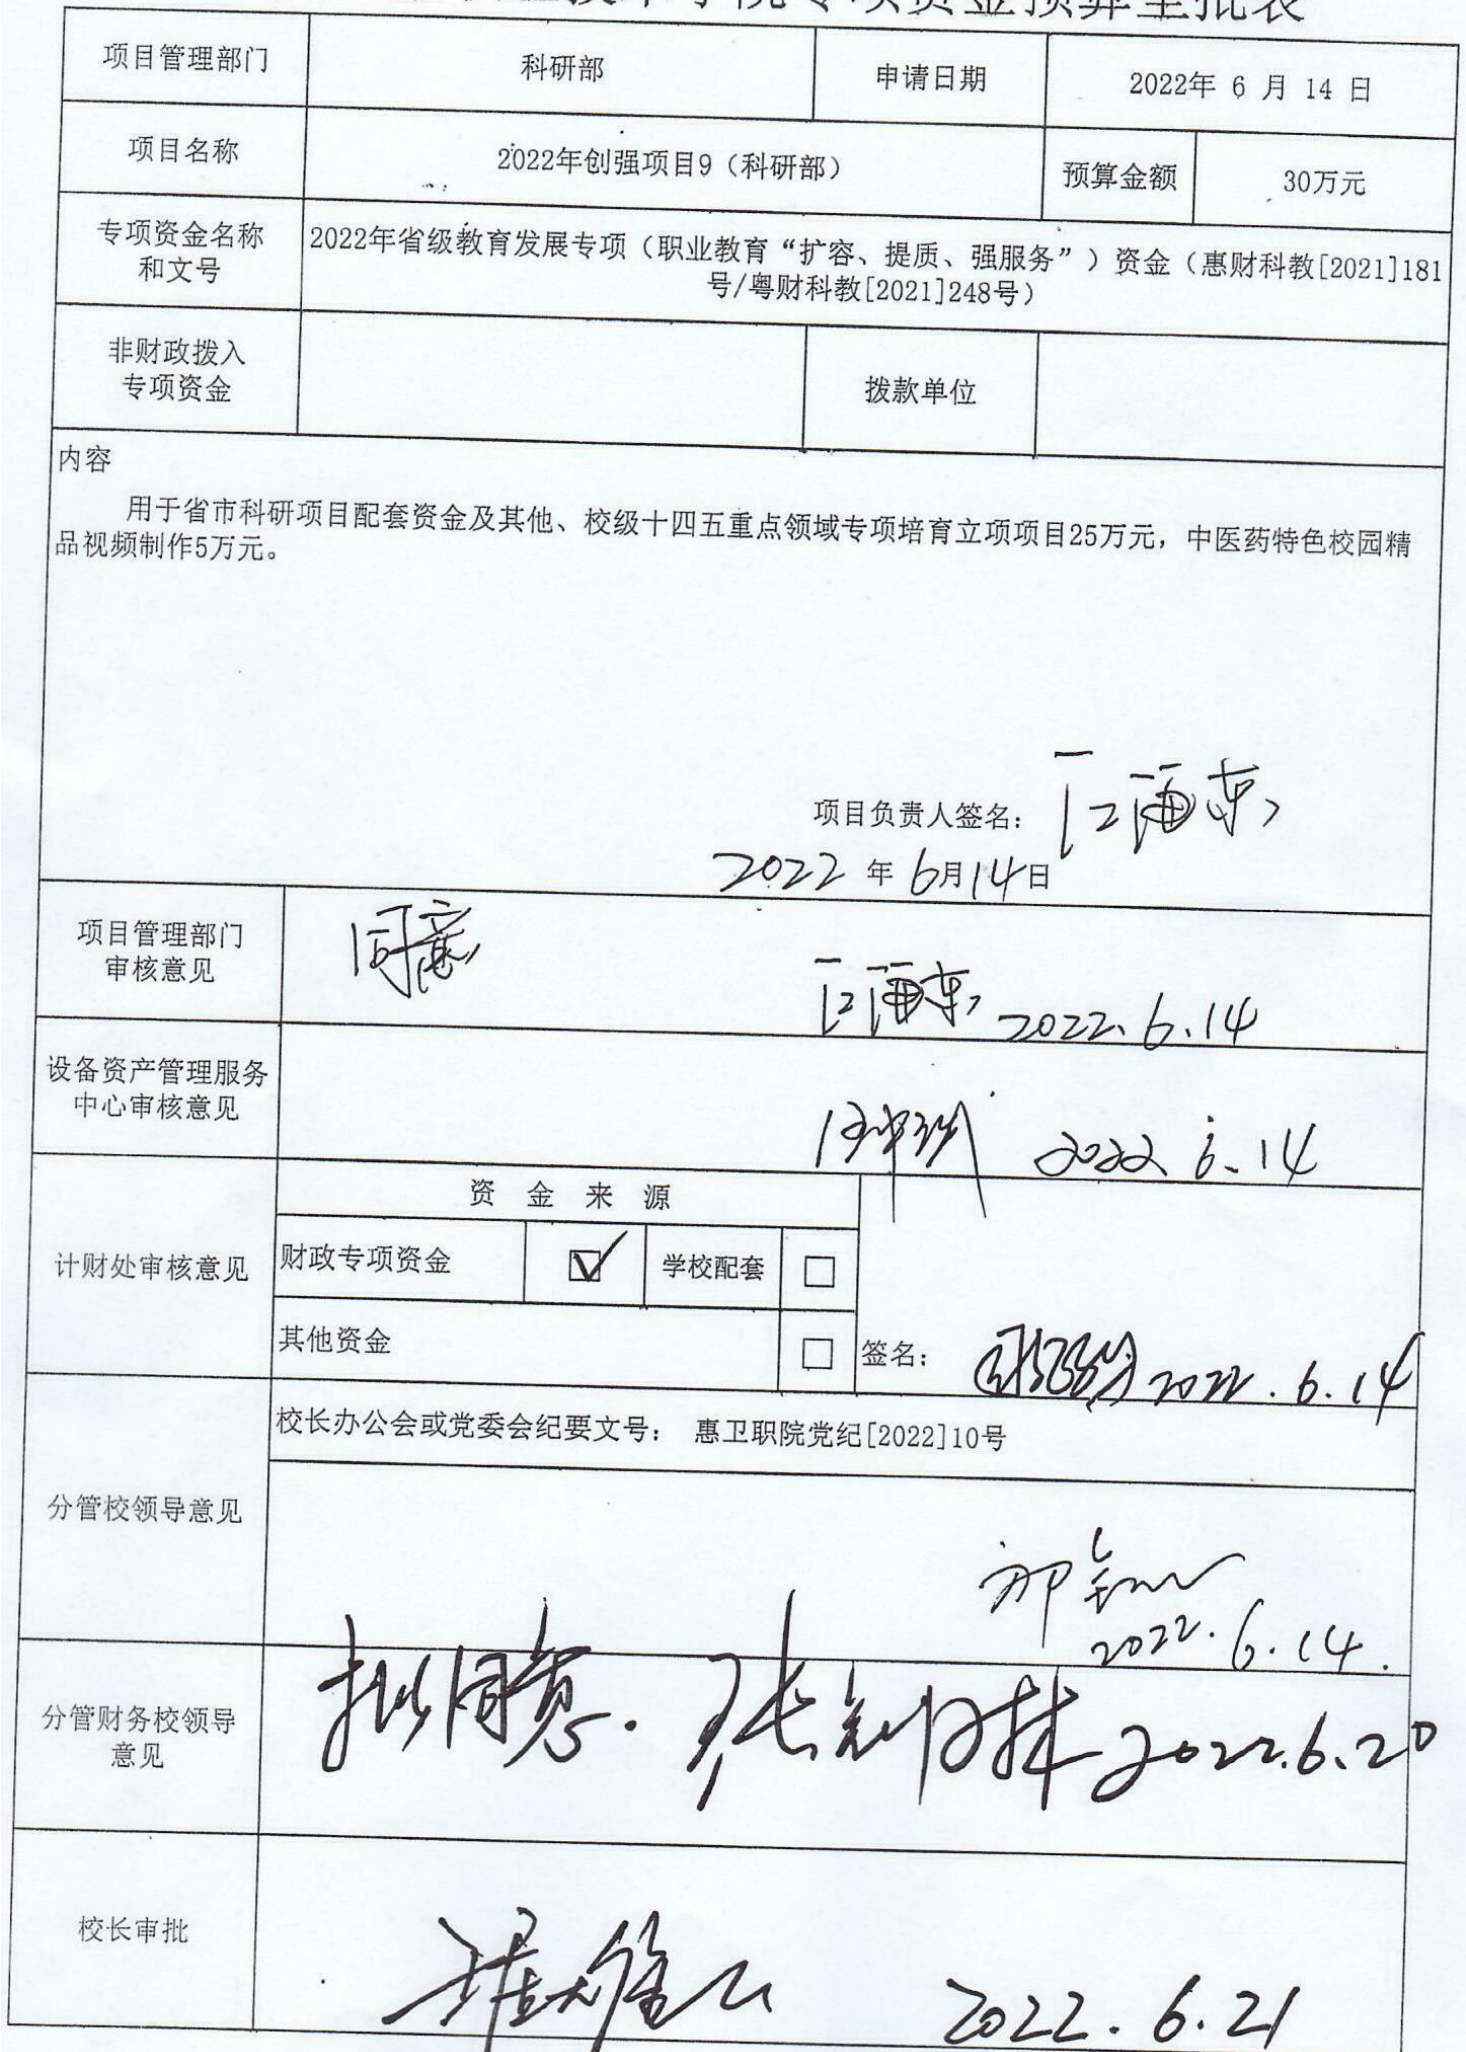 学院专项资金预算审批表
项目管理部门
科研部
申请日期
2022年 6 月 14 日
项目名称
2022年创强项目9（科研部）
预算金额
30万元
专项资金名称
和文号
2022年省级教育发展专项（职业教育“扩容、提质、强服务”）资金（惠财科教[2021]181
号/粤财科教[2021]248号）
非财政拨入
专项资金
拨款单位
内容
用于省市科研项目配套资金及其他、校级十四五重点领域专项培育立项项目25万元，中医药特色校园精
品视频制作5万元。
项目负责人签名：
2022 年 6月14日
项目管理部门
审核意见
同意
2022.6.14
设备资产管理服务
中心审核意见
2022.6.14
计财处审核意见
资 金 来 源
财政专项资金
☑
学校配套
□
其他资金
□
签名：
2022.6.14
分管校领导意见
校长办公会或党委会纪要文号： 惠卫职院党纪[2022]10号
2022.6.14.
分管财务校领导
意见
拟同意. 2022.6.20
校长审批
2022.6.21